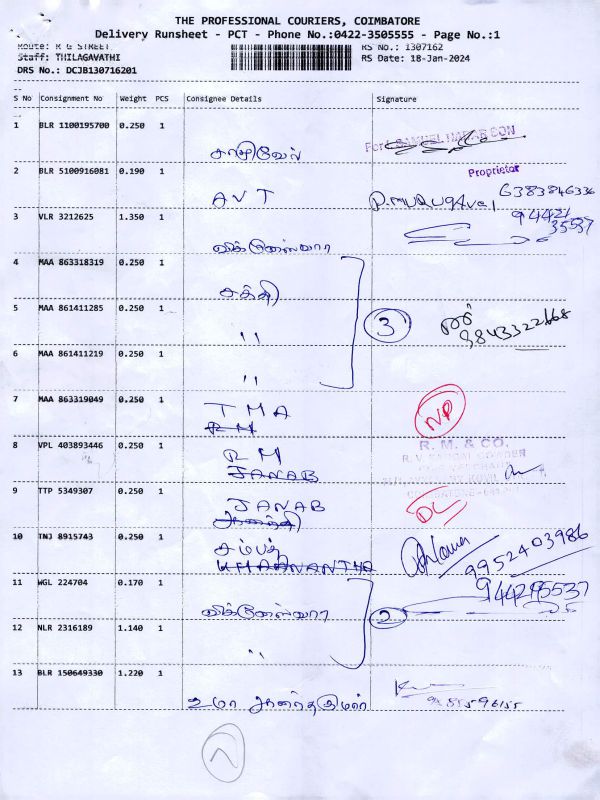 THE PROFESSIONAL COURIERS, COIMBATORE
Delivery Runsheet - PCT - Phone No.:0422-3505555 - Page No.:1
Route: R G STREET RS No.: 1307162
Staff: THILAGAVATHI RS Date: 18-Jan-2024
DRS No.: DCJB130716201
S No Consignment No Weight PCS Consignee Details Signature
1 BLR 1100195700 0.250 1
2 BLR 5100916081 0.190 1 Proprietor
AVT 6383846336
3 VLR 3212625 1.350 1
விக்னேஸ்வரா
4 MAA 863318319 0.250 1
சக்தி
5 MAA 861411285 0.250 1 3
" 9843322668
6 MAA 861411219 0.250 1
"
7 MAA 863319049 0.250 1 NP
TMA
RM
8 VPL 403893446 0.250 1 R. M. & CO.
RM
JANAB
9 TTP 5349307 0.250 1 DL
JANAB
10 TNJ 8915743 0.250 1 9952403986
சம்பத்
11 WGL 224704 0.170 1
விக்னேஸ்வரா 2
12 NLR 2316189 1.140 1
"
13 BLR 150649330 1.220 1
உமா ஆனந்தகுமார்